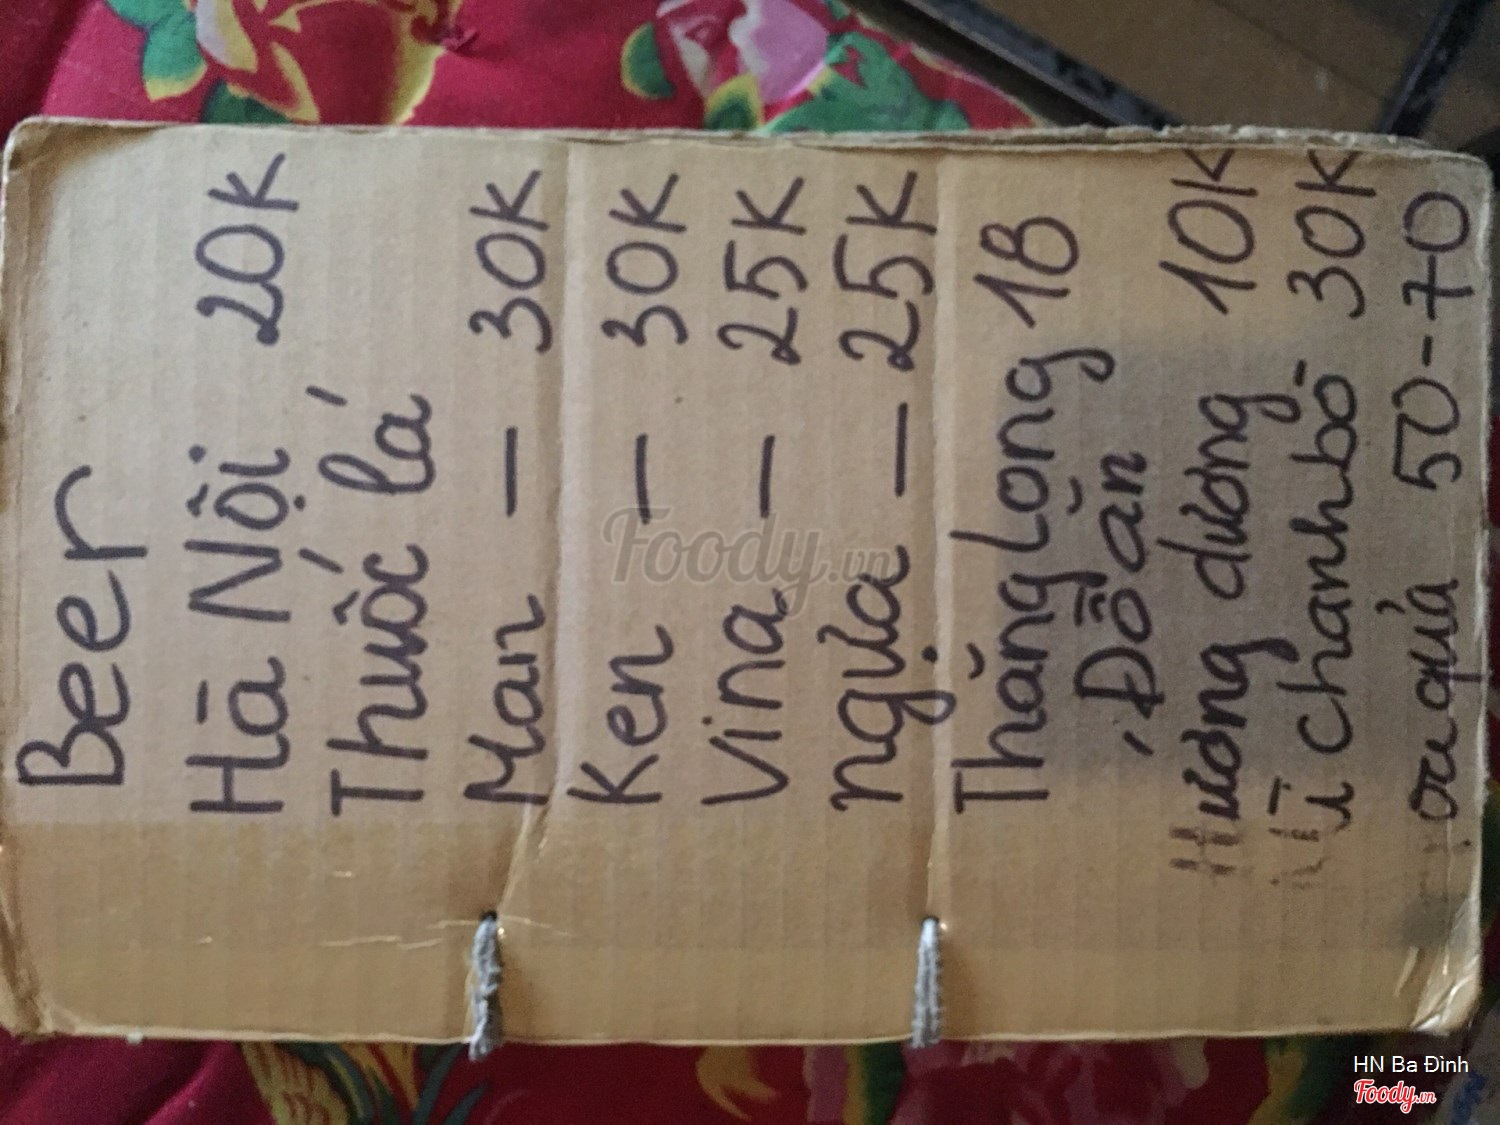 Beer
Hà Nội 20K
Thuốc lá
Man - 30K
Ken - 30K
Vina - 25K
ngựa - 25K
Thăng Long 18
Đồ ăn
Hướng dương 10K
chanh bò - 30K
quả 50-70
Foody.vn
HN Ba Đình
Foody.vn